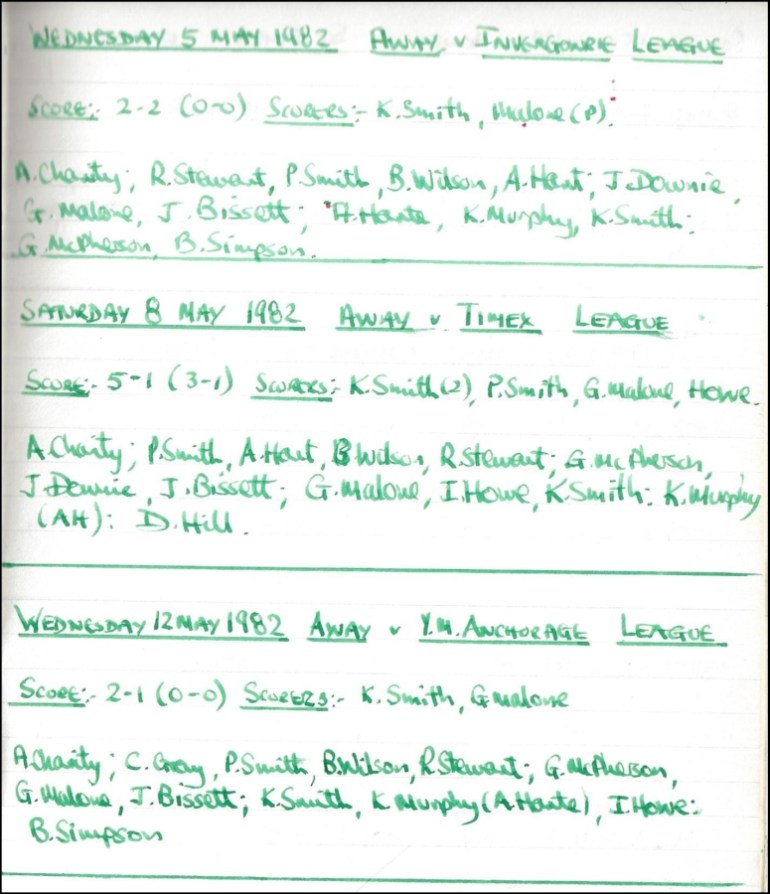 WEDNESDAY 5 MAY 1982 AWAY v INVERGOWRIE LEAGUE
SCORE:- 2-2 (0-0) SCORERS:- K.Smith, Malone (P).
A.Charity; R.Stewart, P.Smith, B.Wilson, A.Hart; J.Downie,
G. Malone, J. Bissett; A.Hante, K.Murphy, K.Smith:
G.McPherson, B.Simpson.
SATURDAY 8 MAY 1982 AWAY v TIMEX LEAGUE
SCORE:- 5-1 (3-1) SCORERS:- K.Smith (2), P.Smith, G.Malone, Howe.
A.Charity; P.Smith, A.Hart, B Wilson, R.Stewart; G.McPherson,
J.Downie, J.Bissett; G.Malone, I.Howe, K.Smith: K.Murphy
(AH): D.Hill.
WEDNESDAY 12 MAY 1982 AWAY v Y.M. ANCHORAGE LEAGUE
SCORE:- 2-1 (0-0) SCORERS:- K.Smith, G Malone
A.Charity; C.Gray, P.Smith, B.Wilson, R.Stewart; G.McPherson,
G.Malone, J.Bissett; K.Smith, K Murphy (A.Hante), I.Howe:
B.Simpson